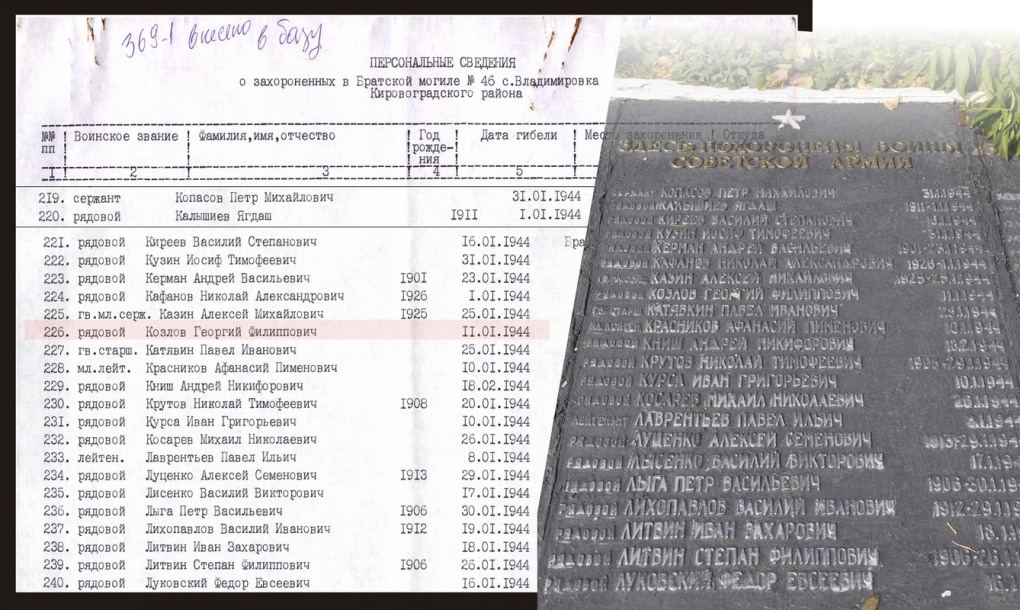 369-1 внесено в базу
ПЕРСОНАЛЬНЫЕ СВЕДЕНИЯ
о захороненных в Братской могиле № 46 с.Владимировка
Кировоградского района
№№ пп ! Воинское звание ! Фамилия,имя,отчество ! Год рожде-ния ! Дата гибели ! Место захоронения ! Откуда
1 2 3 4 5
219. сержант Копасов Петр Михайлович 31.01.1944
220. рядовой Калышиев Ягдаш 1911 1.01.1944
221. рядовой Киреев Василий Степанович 16.01.1944 Бра
222. рядовой Кузин Иосиф Тимофеевич 31.01.1944
223. рядовой Керман Андрей Васильевич 1901 23.01.1944
224. рядовой Кафанов Николай Александрович 1926 1.01.1944
225. гв.мл.серж. Казин Алексей Михайлович 1925 25.01.1944
226. рядовой Козлов Георгий Филиппович 11.01.1944
227. гв.старш. Катявин Павел Иванович 25.01.1944
228. мл.лейт. Красников Афанасий Пименович 10.01.1944
229. рядовой Книш Андрей Никифорович 18.02.1944
230. рядовой Крутов Николай Тимофеевич 1908 20.01.1944
231. рядовой Курса Иван Григорьевич 10.01.1944
232. рядовой Косарев Михаил Николаевич 26.01.1944
233. лейтен. Лаврентьев Павел Ильич 8.01.1944
234. рядовой Луценко Алексей Семенович 1913 29.01.1944
235. рядовой Лисенко Василий Викторович 17.01.1944
236. рядовой Лыга Петр Васильевич 1906 30.01.1944
237. рядовой Лихопавлов Василий Иванович 1912 19.01.1944
238. рядовой Литвин Иван Захарович 18.01.1944
239. рядовой Литвин Степан Филиппович 1906 26.01.1944
240. рядовой Луковский Федор Евсеевич 16.01.1944
ЗДЕСЬ ПОХОРОНЕНЫ ВОИНЫ
СОВЕТСКОЙ АРМИИ
КОПАСОВ ПЕТР МИХАЙЛОВИЧ
КАЛЫШИЕВ ЯГДАШ
КИРЕЕВ ВАСИЛИЙ СТЕПАНОВИЧ
КУЗИН ИОСИФ ТИМОФЕЕВИЧ
КЕРМАН АНДРЕЙ ВАСИЛЬЕВИЧ
КАФАНОВ НИКОЛАЙ АЛЕКСАНДРОВИЧ
КАЗИН АЛЕКСЕЙ МИХАЙЛОВИЧ
КОЗЛОВ ГЕОРГИЙ ФИЛИППОВИЧ
КАТЯВКИН ПАВЕЛ ИВАНОВИЧ
КРАСНИКОВ АФАНАСИЙ ПИМЕНОВИЧ
КНИШ АНДРЕЙ НИКИФОРОВИЧ
РЯДОВОЙ КРУТОВ НИКОЛАЙ ТИМОФЕЕВИЧ
РЯДОВОЙ КУРСА ИВАН ГРИГОРЬЕВИЧ 10.1.1944
РЯДОВОЙ КОСАРЕВ МИХАИЛ НИКОЛАЕВИЧ 26.1.1944
ЛАВРЕНТЬЕВ ПАВЕЛ ИЛЬИЧ
РЯДОВОЙ ЛУЦЕНКО АЛЕКСЕЙ СЕМЕНОВИЧ
РЯДОВОЙ ЛЫСЕНКО ВАСИЛИЙ ВИКТОРОВИЧ
РЯДОВОЙ ЛЫГА ПЕТР ВАСИЛЬЕВИЧ
РЯДОВОЙ ЛИХОПАВЛОВ ВАСИЛИЙ ИВАНОВИЧ
РЯДОВОЙ ЛИТВИН ИВАН ЗАХАРОВИЧ
РЯДОВОЙ ЛИТВИН СТЕПАН ФИЛИППОВИЧ
РЯДОВОЙ ЛУКОВСКИЙ ФЕДОР ЕВСЕЕВИЧ